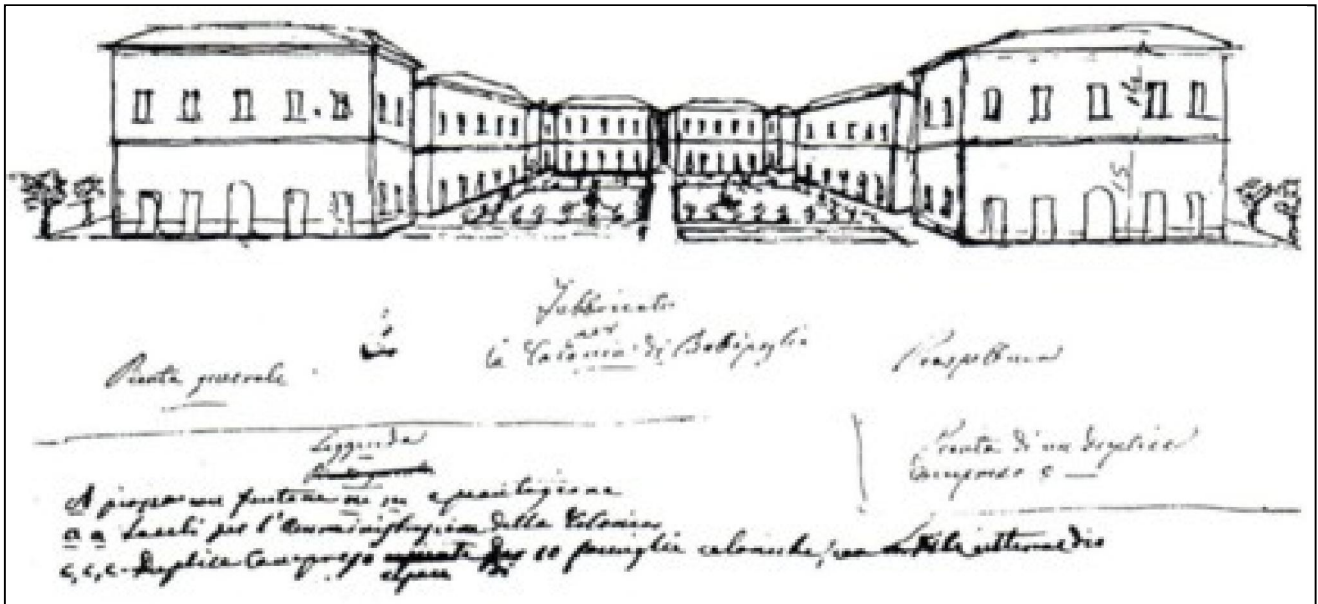 Fabbricato
per
la Colonia di Battipaglia
Pianta generale
Prospettiva
Leggenda
Pianta di un duplice
Compreso c
A piazza con fontane m m e piantagione
a a Locali per l'Amministrazione della Colonia
c, c, c Duplice Compreso 10 famiglie coloniche, intermedio
capace di